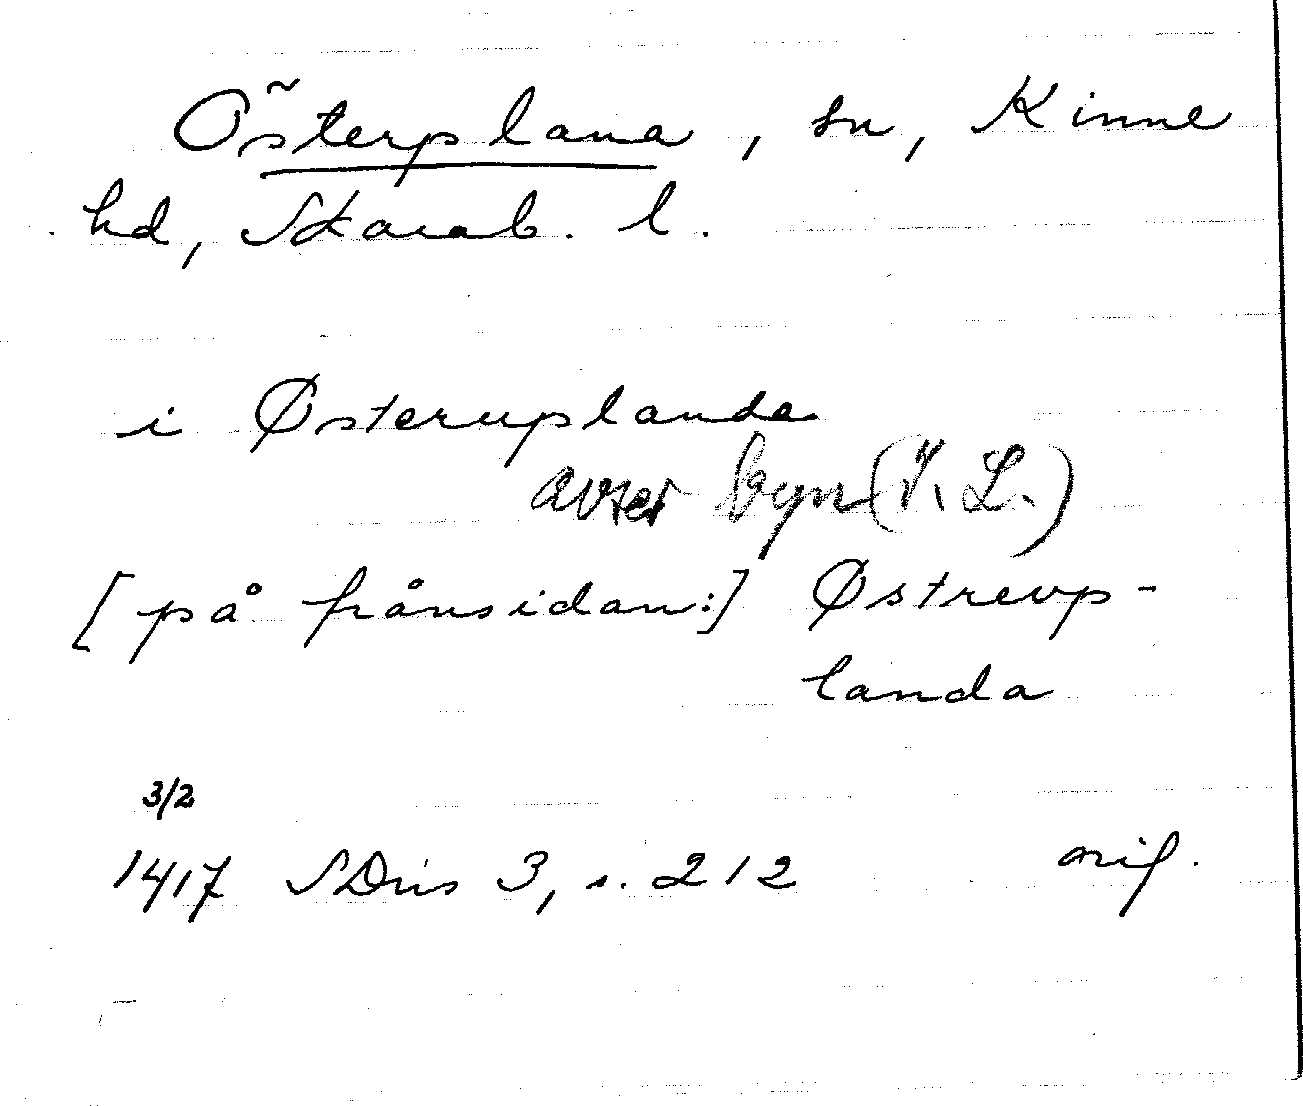 Österplana, sn, Kinne
hd, Skarab. l.
i Østeruplanda
avser byn (I. L.)
[på frånsidan:] Østreup-
landa
3/2
1417 SDns 3, s. 212 orig.